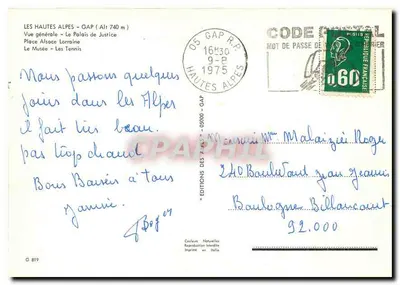 LES HAUTES ALPES - GAP (Alt 740 m)
Vue générale - Le Palais de Justice
Place Alsace Lorraine
Le Musée - Les Tennis
05 GAP R.P.
16H30
9-8
1975
HAUTES ALPES
CODE POSTAL
MOT DE PASSE DE
0,60
FRANÇAISE
Nous passons quelques
jours dans les Alpes
il fait très beau.
pas trop chaud
Bons Baisers à tous
EDITIONS DES
05000 - GAP
CPAPHIL
Monsieur Mme Malaizée Roger
240 Boulevard Jean Jaurès
Boulogne Billancourt
92.000
G 819
Couleurs Naturelles
Reproduction interdite
Imprimé en Italie